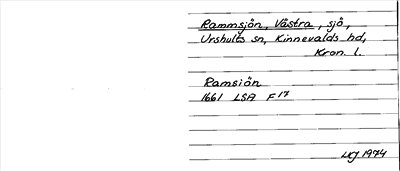 Rammsjön, Västra, sjö,
Urshults sn, Kinnevalds hd,
Kron. l.
Ramsiön
1661 LSA F 17
1974